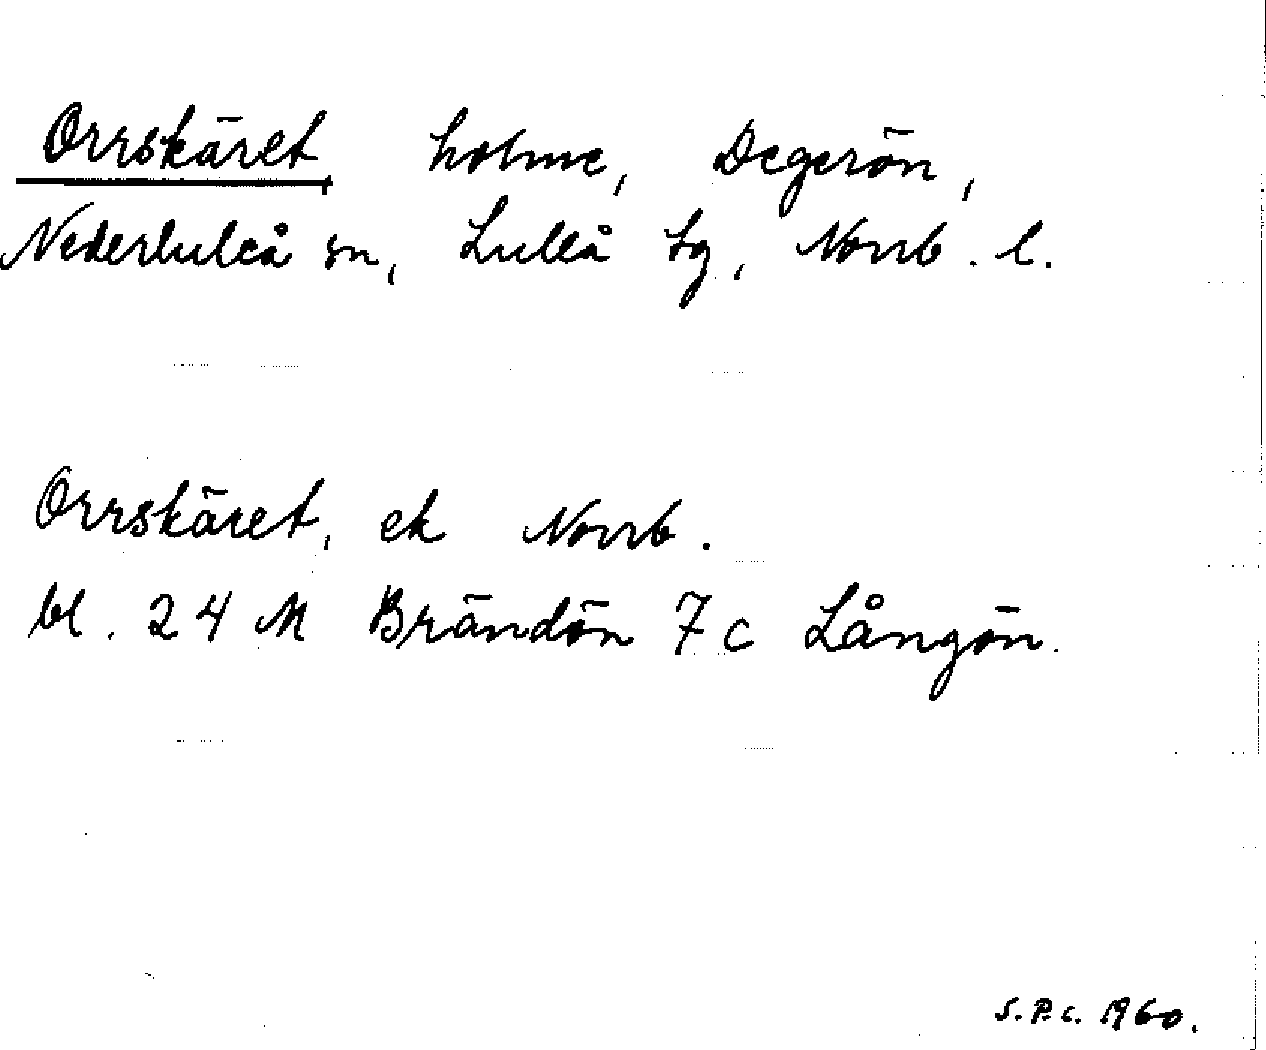 Orrskäret, holme, Degerön,
Nederluleå sn, Luleå tg, Norrb. l.
Orrskäret, ek Norrb.
bl. 24 M Brändön 7 c Långön.
S.P.C. 1960.